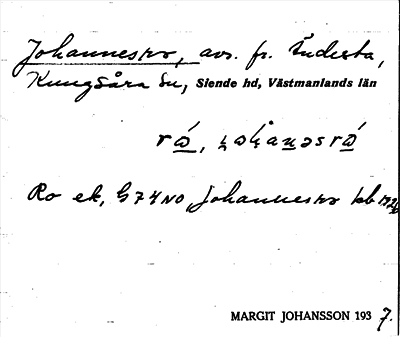 Johannesro, avs. fr. Inderta,
Kungsåra sn, Siende hd, Västmanlands län
Ro ek, G 74 NO, Johannesro kb
MARGIT JOHANSSON 1937.